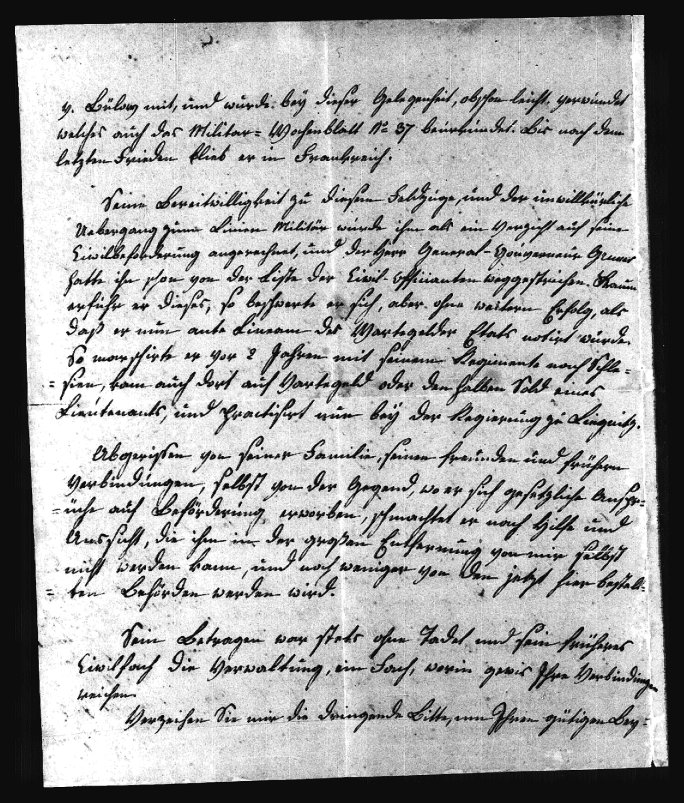 v. Bülow mit, und wurde bey dieser Gelegenheit, obschon leicht verwundet
welches auch das Militär= Wochenblatt No 37 beurkundet. Bis nach dem
letzten Frieden blieb er in Frankreich.
Seine Bereitwilligkeit zu diesem Feldzuge, und der unwillkürliche
Uebergang zum Linien Militär wurde ihm als ein Verzicht auf seine
Civilbeförderung angerechnet, und der Herr General-Gouverneur
hatte ihn schon von der Liste der Civil-Officianten weggestrichen. Kaum
erfuhr er dieses, so beschwerte er sich, aber ohne weitern Erfolg, als
daß er nun ante Lineam des Wartegelder Etats notirt wurde.
So marschirte er vor 2 Jahren mit seinem Regimente nach Schle=
=sien, kam auch dort auf Wartegeld oder den halben Sold eines
Lieutenants, und practisirt nun bey der Regierung zu Liegnitz.
Abgerissen von seiner Familie, seinen Freunden und frühern
Verbindungen, selbst von der Gegend, wo er sich gesetzliche Ansprü=
=che auf Beförderung erworben, schmachtet er nach Hilfe und
Aussicht, die ihm in der großen Entfernung von mir selbst
nicht werden kann, und noch weniger von den jetzt hier bestell=
=ten Behörden werden wird.
Sein Betragen war stets ohne Tadel und sein früheres
Civilfach die Verwaltung, ein Fach, worin gewis Ihre Verbindungen
reichen.
Verzeihen Sie mir die dringende Bitte, um Ihren gütigen Bey=